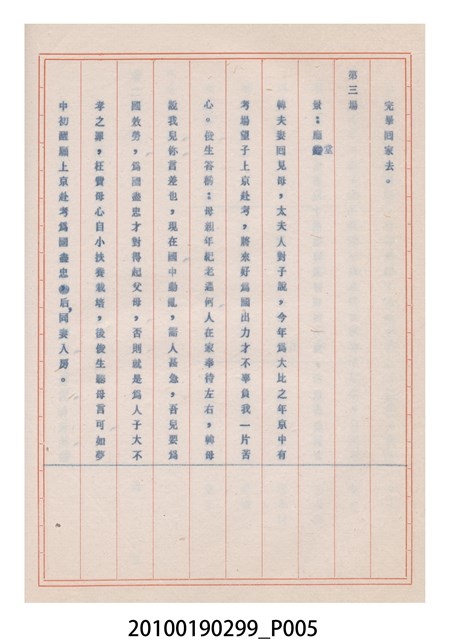 完畢回家去。
第三場
景：廳堂
韓夫妻回見母，太夫人對子說，今年為大比之年京中有
考場望子上京赴考，將來好為國出力才不辜負我一片苦
心。俊生答稱：母親年紀老邁何人在家奉待左右，韓母
說我兒你言差也，現在國中動亂，需人甚急，吾兒要為
國效勞，為國盡忠才對得起父母，否則就是為人子大不
孝之罪，枉費母心自小扶養栽培，後俊生聽母言可如夢
中初醒願上京赴考為國盡忠，后，同妻入房。
20100190299_P005